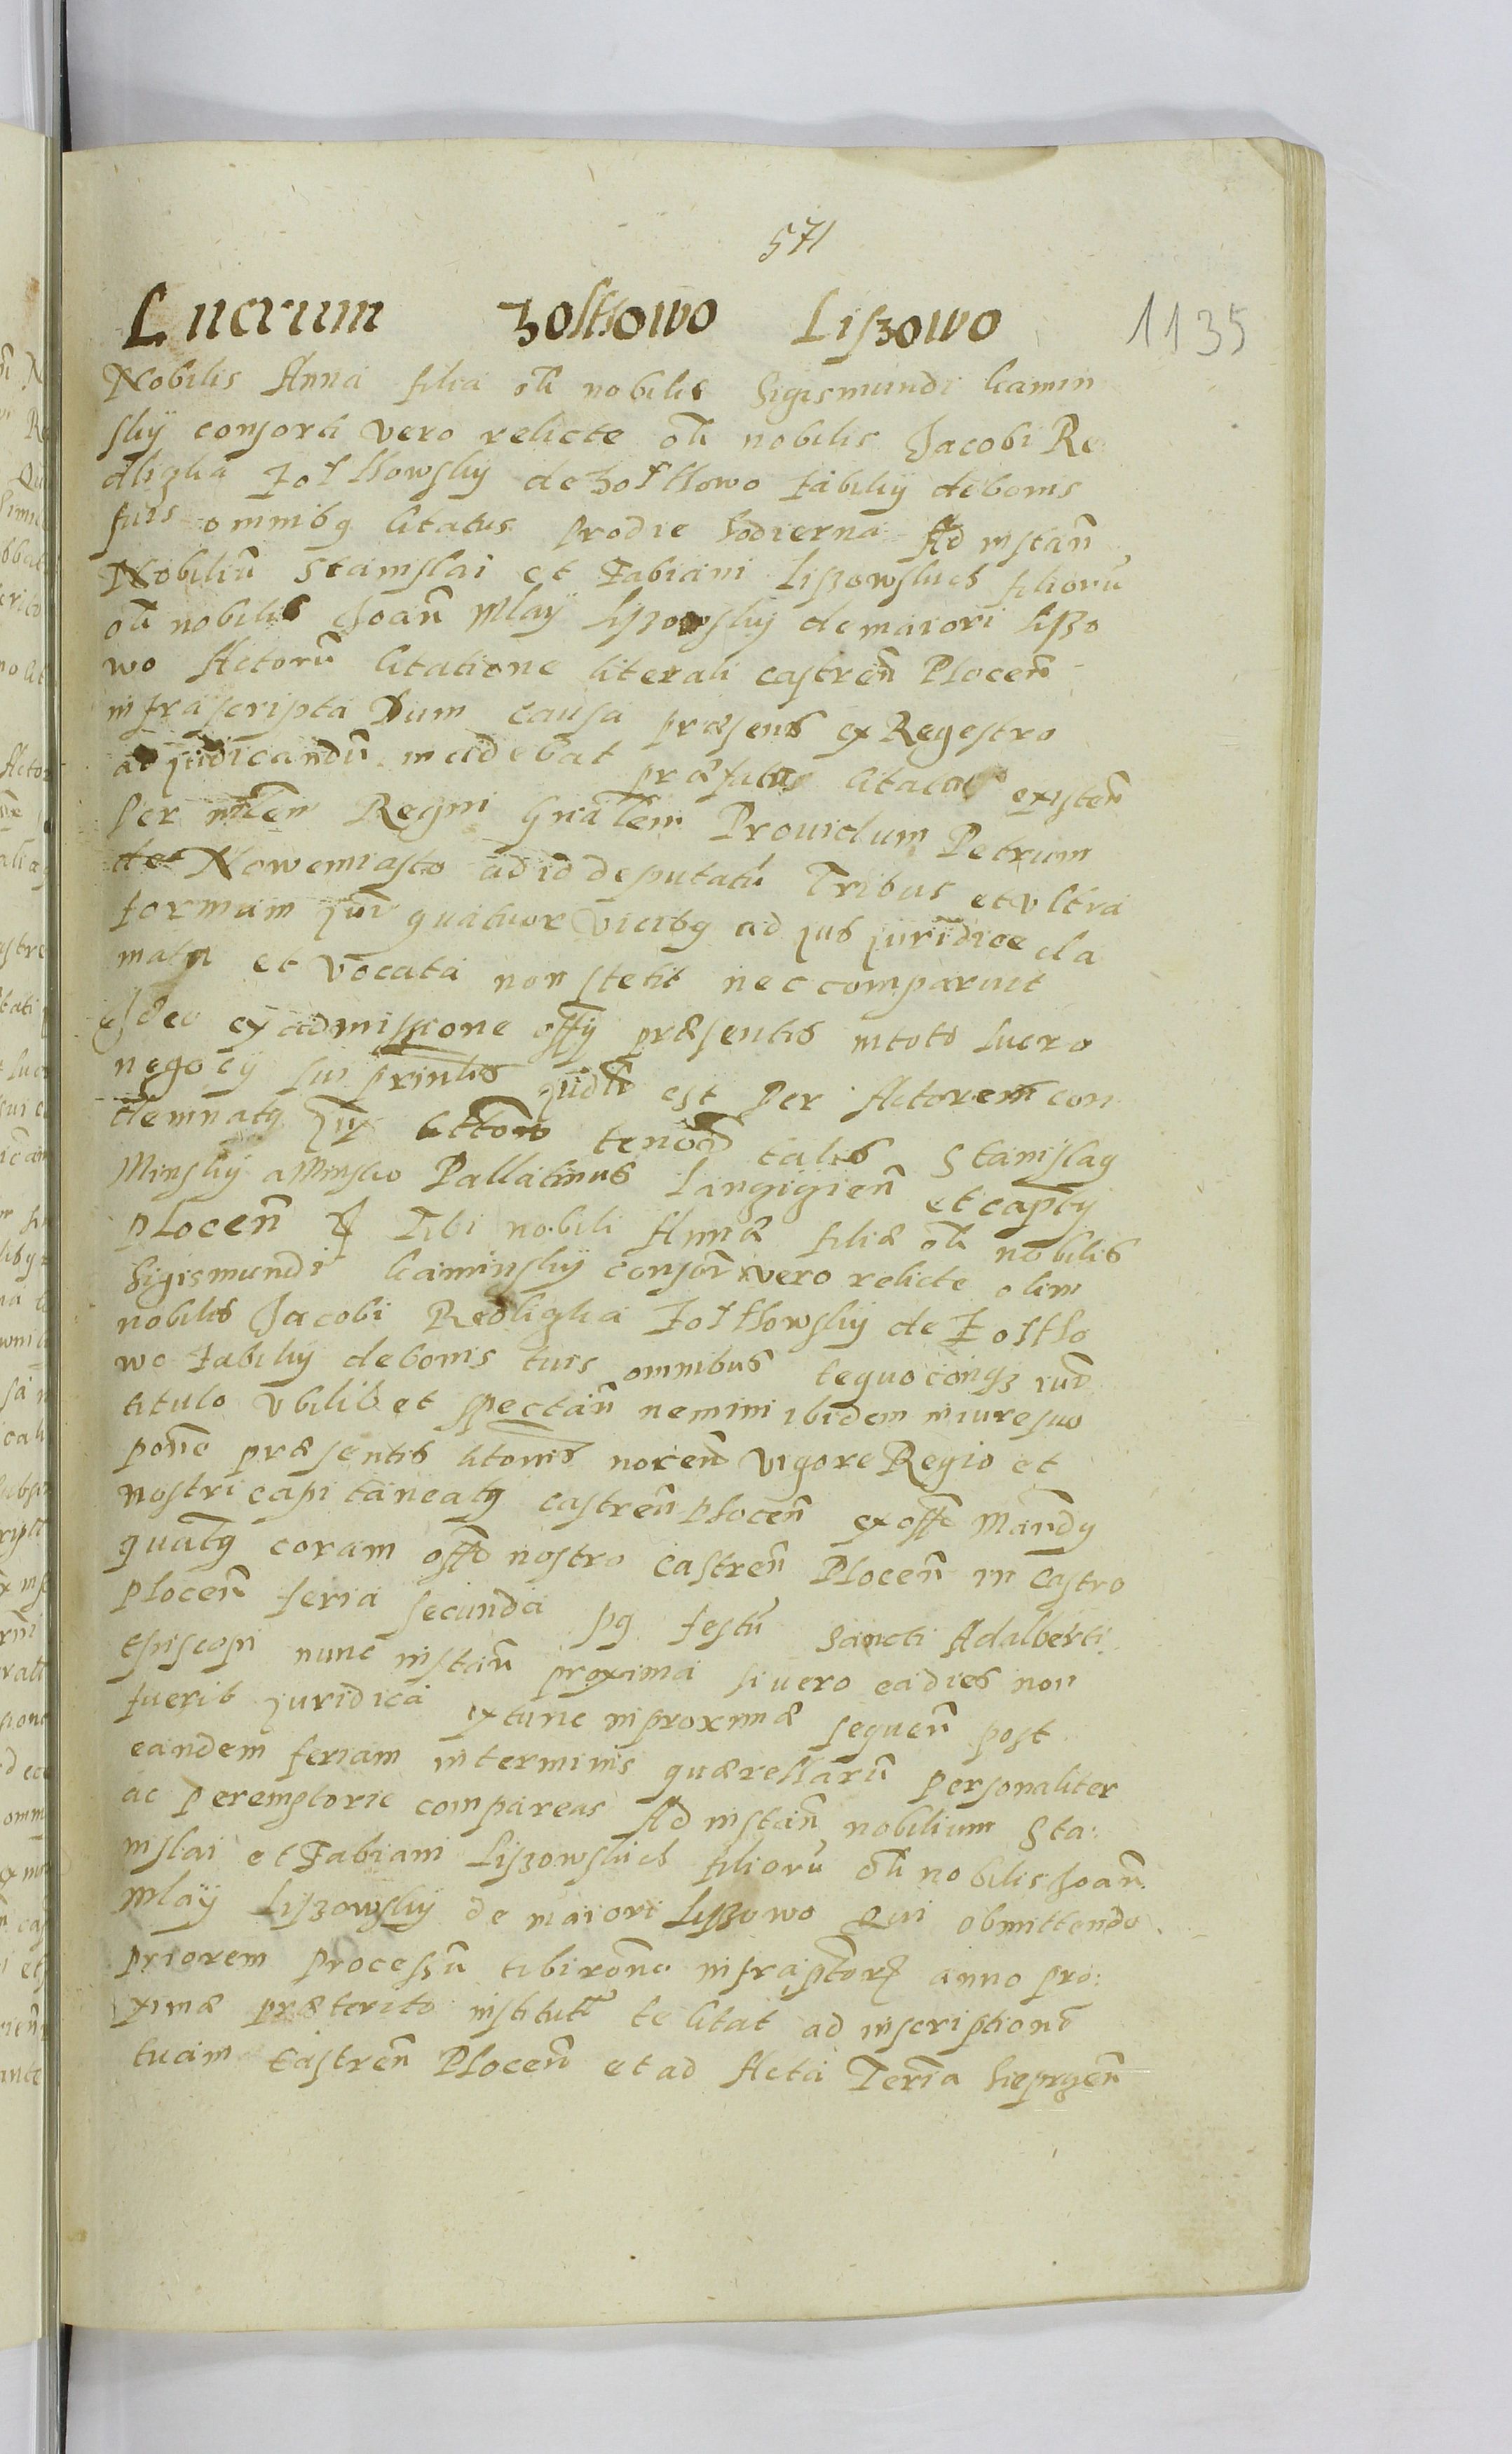 571
Lucrum Zolthowo Liszowo
1135
Nobilis Anna filia oli nobilis Sigismundi Kamin
skÿ consorti vero relicte oli nobilis Jacobi Re
dligka Zolthowskÿ de Zolthowo debonis
suis omnibq citatus prodie hodierna Ad instan
Nobiliũ Stanislai et Fabiani Liszowskich filiorũ
oli nobilis Joañ Mlaÿ Liszowskÿ de maiori Liszo
wo Actorũ Citatione literali castreñ Ploceñ
infrascripta Dum causa præsens ex Regestro
ad judicandũ incidebat præfatus citatus existeñ
Per Regni Gnalem Providum Petrum
de Nowemiasto ad id deputatũ Tribus et ultra
formam juri quatuor vicibq ad jus juridice cla
mata et vocata non stetit nec comparuit
Ideo ex admissione offÿ præsentis in toto lucro
negocÿ sui prinlis est Per Actorem con
demnatq tenor talis Stanislaq
Minskÿ a Minsko Pallatinus Lancicieñ et captÿ
Ploceñ Tibi nobili Annæ filiæ oli nobilis
Sigismundi Kaminskÿ vero relicte olim
nobilis Jacobi Redligka Zolthowskÿ de Zoltho
wo debonis tuis omnibus
titulo ubilibet spectañ nemini ibidem in iure suo
præsentis noceñ vigore Regio et
nostri capitaneatq castreñ Ploceñ ex offo Mandq
quatq coram offo nostro castreñ Ploceñ in Castro
Ploceñ feria secunda pq festũ Sancti Adalberti
Episcopi nunc instañ proxima si vero ea dies non
fuerit juridica extunc in proximæ sequeñ post
eandem feriam in terminis quærellarũ personaliter
ac peremptorie compareas Ad instañ nobilium Sta:
nislai et Fabiani Liszowskich filiorũ oli nobilis Joañ
Mlaÿ Liszowskÿ de maiori Liszowo Qui obmittendo
priorem processũ tibi rone anno pro:
ximæ præterito institutũ te citat ad inscriptionẽ
tuam castreñ Ploceñ et ad Acta Terria Sieprgeñ